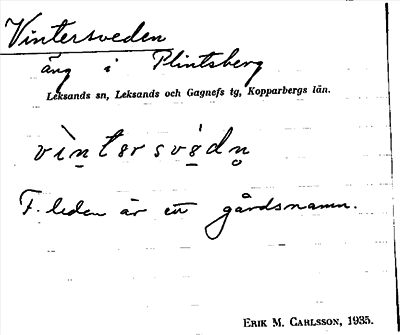 Vintersveden
äng i Plintsberg
Leksands sn, Leksands och Gagnefs tg, Kopparbergs län.
vìn̲tersvé̲dn̥
F. leden är ett gårdsnamn.
ERIK M. CARLSSON, 1935.